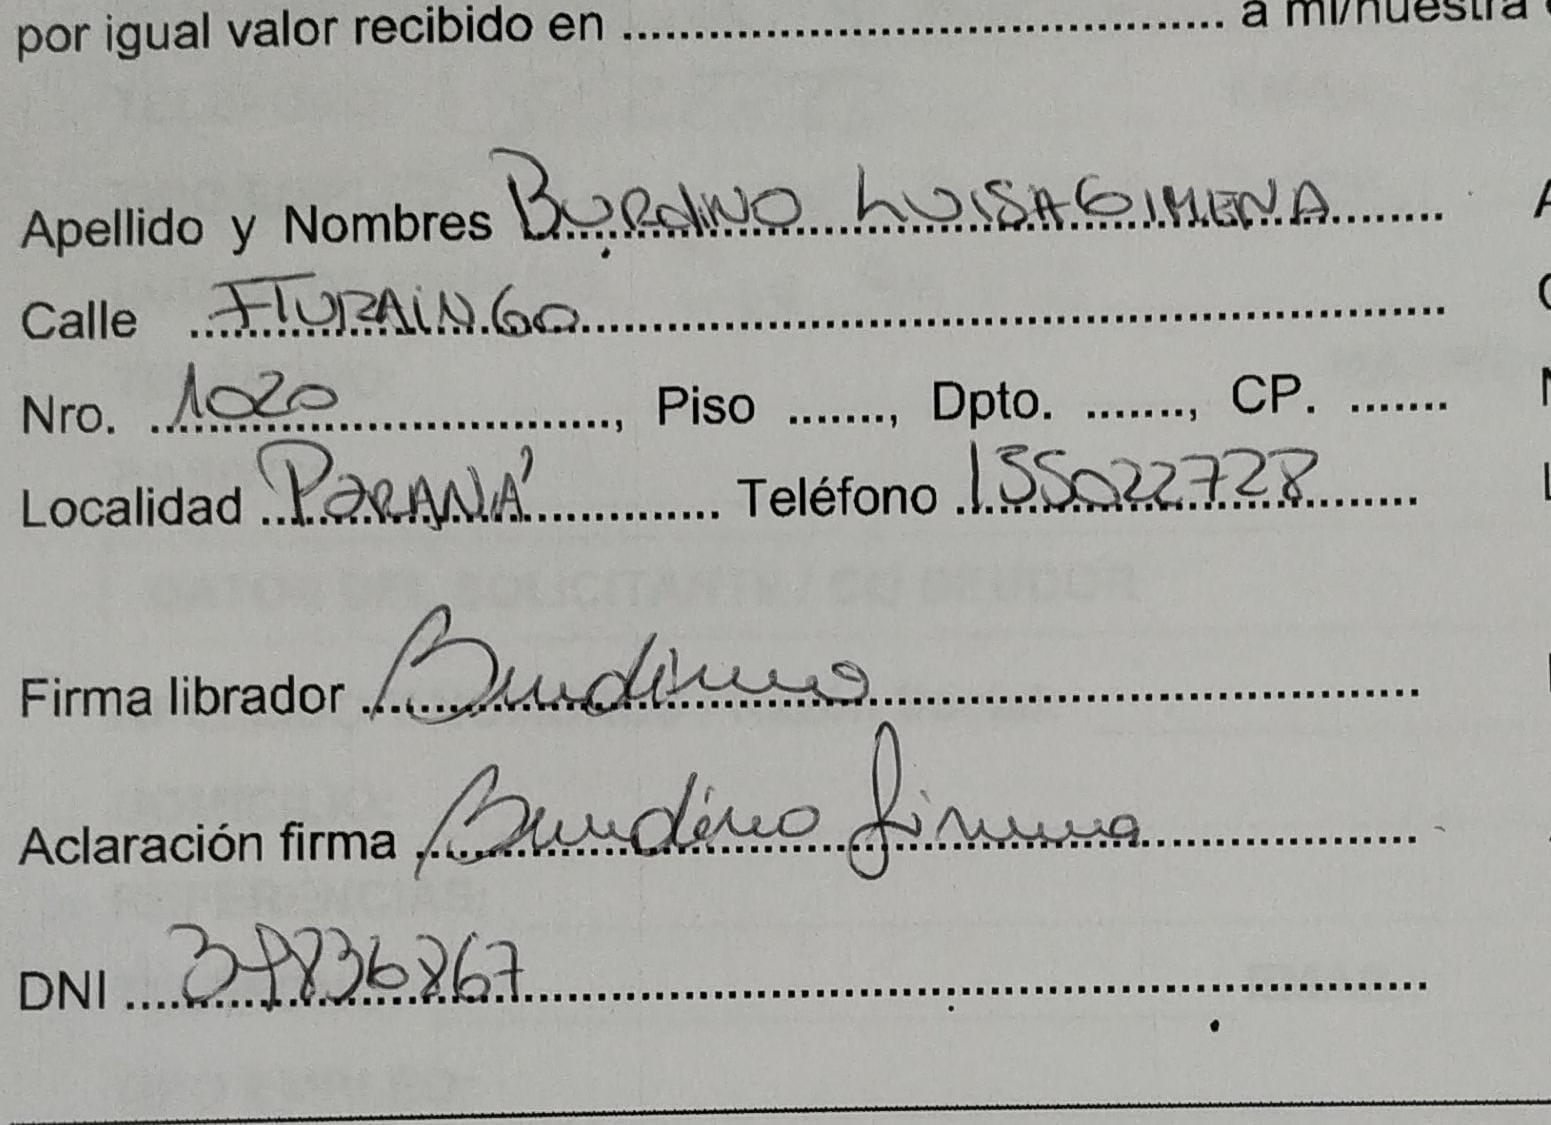 por igual valor recibido en ........................................ a mi/nuestra
Apellido y Nombres BURdiNO LUISA GIMENA
Calle ITURAiNGO
Nro. 1020, Piso ......., Dpto. ......., CP. .......
Localidad PARANÁ Teléfono 155022728
Firma librador Burdino
Aclaración firma Burdino Gimena
DNI